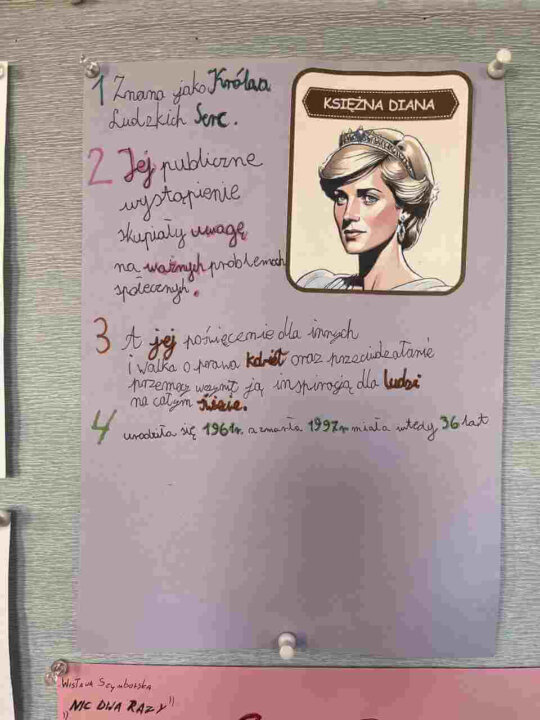 KSIĘŻNA DIANA
1 Znana jako Królowa
Ludzkich Serc.
2 Jej publiczne
wystąpienie
skupiały uwagę
na ważnych problemach
społecznych.
3 A jej poświęcenie dla innych
i walka o prawa kobiet oraz przeciwdziałanie
przemocy ją inspiracją dla ludzi
na całym świecie.
4 urodziła się 1961r. a zmarła 1997r miała wtedy 36 lat
Wisława Szymborska
"NIC DWA RAZY"